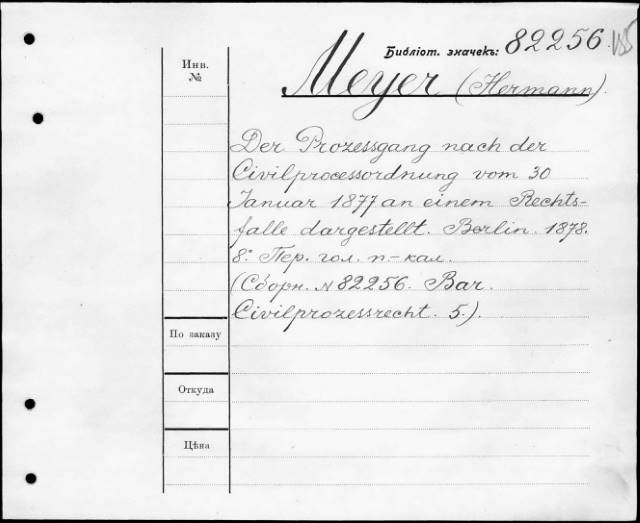 Библіот. значекъ: 82256.
Инв.
№
Meyer (Hermann).
Der Prozessgang nach der
Civilprocessordnung vom 30
Januar 1877 an einem Rechts-
falle dargestellt. Berlin. 1878.
8° Пер. гол. п.-кал.
(Сборн. № 82256. Bar.
Civilprozessrecht. 5.).
По заказу
Откуда
Цѣна